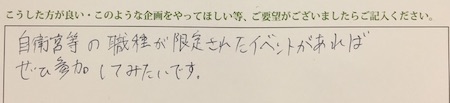 こうした方が良い・このような企画をやってほしい等、ご要望がございましたらご記入ください。
自衛官等の職種が限定されたイベントがあれば
ぜひ参加してみたいです。